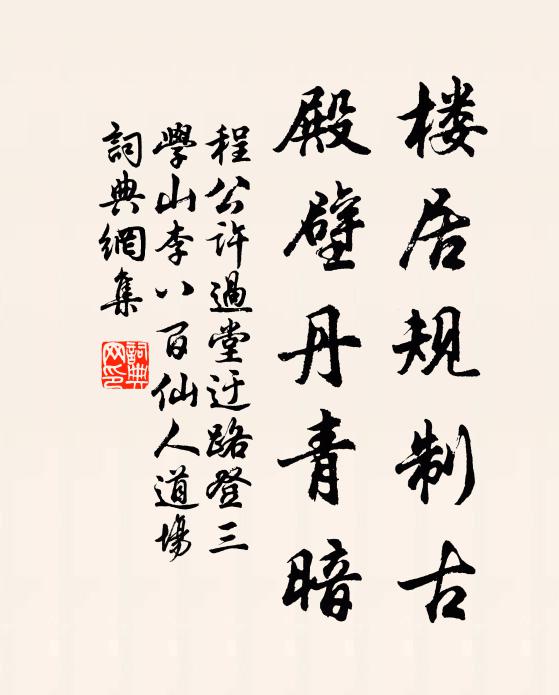 楼居规制古
殿壁丹青暗
程公许過堂迂路登三
學山李八百仙人道場
詞典網集
詞典網印